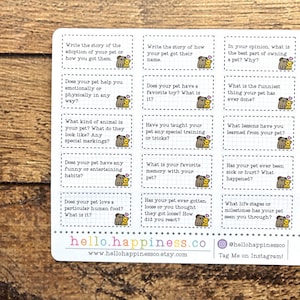 Write the story of the
adoption of your pet or
how you got them.
Write the story of how
your pet got their
name.
In your opinion, what is
the best part of owning
a pet? Why?
Does your pet help you
emotionally or
physically in any
way?
Does your pet have a
favorite toy? What is
it?
What is the funniest
thing your pet has
ever done?
What kind of animal is
your pet? What do they
look like? Any
special markings?
Have you taught your
pet any special training
or tricks?
What lessons have you
learned from your pet?
Does your pet have any
funny or entertaining
habits?
What is your favorite
memory with your
pet?
Has your pet ever been
sick or hurt? What
happened?
Does your pet love a
particular human food?
What is it?
Has your pet ever gotten
loose or you thought
they got loose? How
did you react?
What life stages or
milestones has your pet
seen you through?
hello.happiness.co
www.hellohappinessco.etsy.com
@hellohappinessco
Tag Me on Instagram!